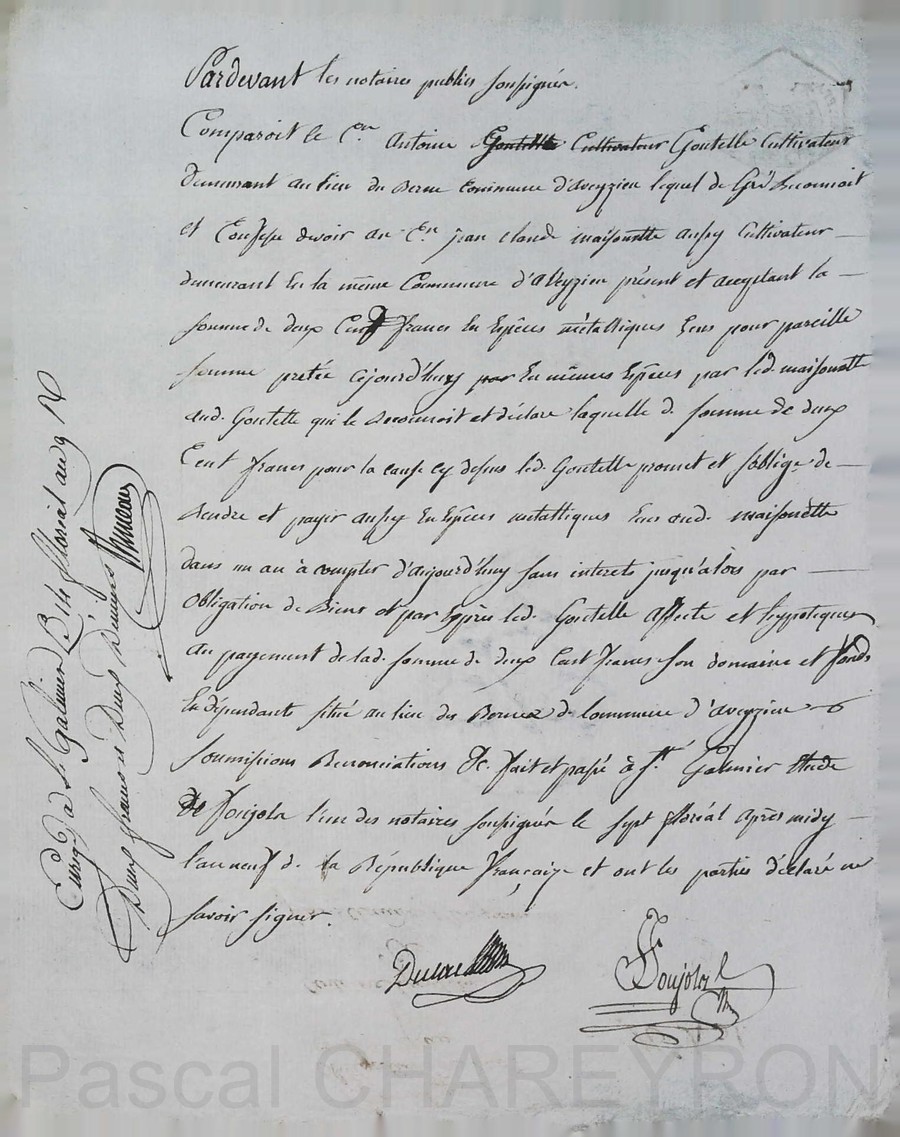 Pardevant les notaires publics soussignés.
Comparoit le Cen Antoine Goutelle Cultivateur Goutelle Cultivateur
demeurant au lieu du Berne commune d'aveyzieu lequel de Gré Reconnoit
et Confesse devoir au Cen jean claude maisonette aussy Cultivateur
demeurant en la même Commune d'aveyzieu présent et acceptant la
somme de deux Cent francs En Espèces métalliques Eens pour pareille
somme pretée cejourd'huy par En mêmes Espèces par led. maisonette
aud. Goutelle qui le Reconnoit et déclare laquelle d. somme de deux
Cent francs pour la cause cy dessus led. Goutelle promet et s'oblige de
Rendre et payer aussy En Espèces métalliques aud. maisonette
dans un an à compter d'aujourd'huy sans interets jusqu'alors par
Obligation de Biens et par Exprès led. Goutelle Affecte et hypoteque
au payement de lad. somme de deux Cent francs son domaine et fonds
En dépendants situé au lieu des Bernes d. commune d'aveyzieu
soumissions Renonciations &c. fait et passé à St. Galmier Etude
De Poujola l'un des notaires soussignés le sept floréal après midy
l'an neuf d. la République française et ont les parties déclaré ne
savoir signer.
Poujola
Enrg. à St Galmier le 14 floréal an 9
Deux francs Deux Décimes
Pascal CHAREYRON